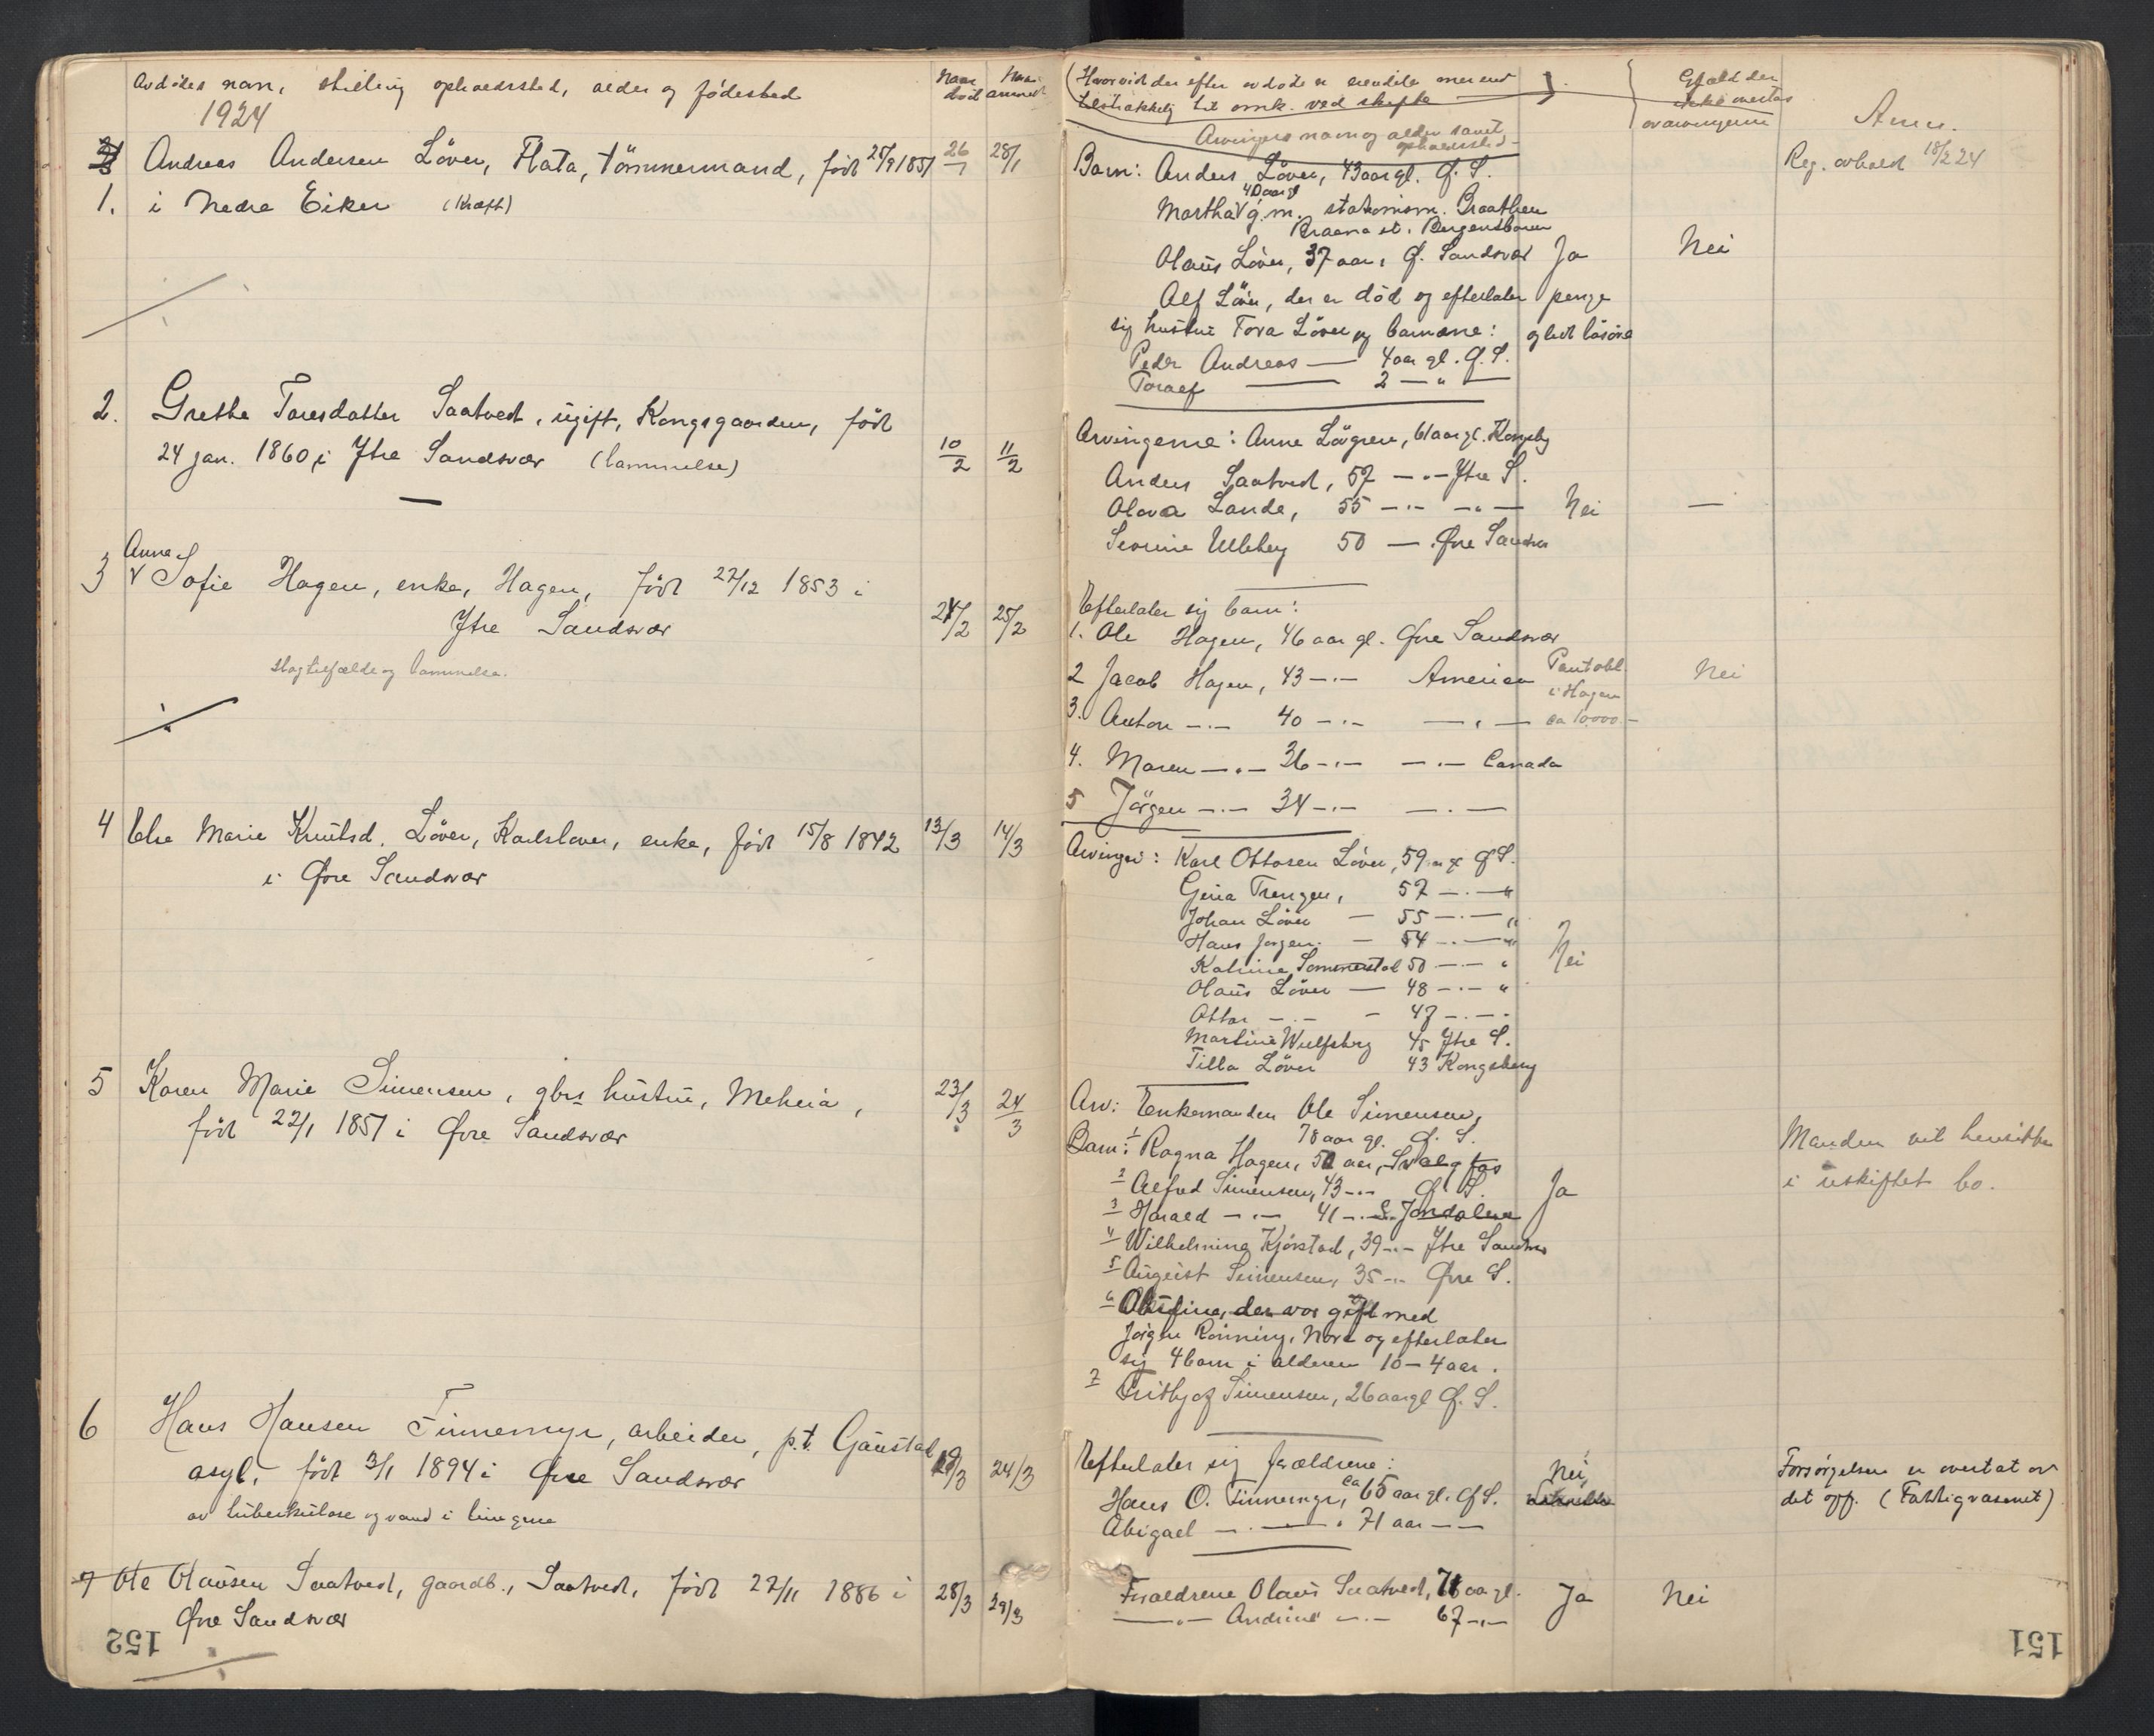 Avdødes navn, stilling opholdssted, alder og fødested
Naar død
Naar anmeldt
1924
1. Andreas Andersen Löver, Flata, tömmermand, född 1851 26/1 28/1
i Nedre Eiker (Kræft)
2. Grethe Toresdatter Saatvedt, ugift, Kongsgaarden, född
24 jan. 1860 i Ytre Sandsvær (lammelse) 10/2 11/2
Anne
3 Sofie Hagen, enke, Hagen, född 27/12 1853 i
Ytre Sandsvær 24/2 25/2
slagtilfælde og lammelse.
4 Else Marie Knutsd. Löver, Karlsløver, enke, född 15/8 1842 13/3 14/3
i Øvre Sandsvær
5 Karen Marie Simensen, gbrs hustru, Meheia, 23/3 24/3
född 22/1 1851 i Øvre Sandsvær
6 Hans Hansen Tinnemyr, arbeider, p.t. Gaustad
asyl, född 3/1 1894 i Øvre Sandsvær 19/3 24/3
av tuberkulose og vand i lungene
7 Ole Olausen Saatvedt, gaardb., Saatvedt, född 27/11 1886 i 28/3 29/3
Øvre Sandsvær
152
(Hvorvidt der efter avdøde er eiendele mer end
tilstrækkelig til omk. ved skifte)
Arvingers navn og alder samt
opholdssted
Gjæld der
ikke overtas
av arvingerne
Anm.
Barn: Anders Löver, 43 aar gl. Ø. S. Reg. avholdt 18/2 24
40 aar gl
Martha g.m. stationsm. Braathen
st. Bergensbanen
Olaus Löver, 37 aar, Ø. Sandsvær Ja Nei
Alf Löver, der er död og efterlater penge
sig hustru Tora Löver og barnene: og litt lösöre
Peder Andreas — 4 aar gl. Ø. S.
Toralf — 2 — " —
Arvingerne: Anne Lövgren, 61 aar gl. Kongsbg
Anders Saatvedt, 57 — " — Ytre S.
Olava Lande, 55 — " — — " — Nei —
Severine Ulleberg 50 — Øvre Sandsvær
Efterlater sig barn:
1. Ole Hagen, 46 aar gl. Øvre Sandsvær
2 Jacob Hagen, 43 — " — America Pantobl. Nei
i Hagen
3. Anton — " — 40 — " — — " — ca 10000.–
4. Maren — " — 36 — " — — " — Canada
5 Jörgen — " — 34 — " — — " —
Arvinger: Karl Ottosen Löver, 59 aar gl Ø S.
Gina Trengen, 57 — " — "
Johan Löver — 55 — " — "
Hans Jørgen — 54 — " — "
Katrine Sommerstad 50 — " — " Nei
Olaus Löver — 48 — " — "
Ottar — " — - 47 — " — "
Martine Wulfsberg 45 Ytre S.
Tilla Löver 43 Kongsberg
Arv: Enkemanden Ole Simensen,
78 aar gl. Ø. S.
Barn: 1 Ragna Hagen, 50 aar, Svelgfos
2 Alfred Simensen, 43 — " — Ø. S. Ja
3 Harald — " — 41 — " — S. Jondalen
4 Wilhelmine Kjörstad, 39 — " — Ytre Sandsvær
5 August Simensen, 35 — " — Øvre S.
6 Olufine, der var gift med
Jörgen Rönning, Nore og efterlater
sig 4 barn i alderen 10–4 aar.
7 Fritjof Simensen, 26 aar gl Ø. S.
Manden vil hensitte
i uskiftet bo.
Efterlater sig forældrene:
Hans O. Tinnemyr, ca 65 aar gl. Ø S. Nei
Abigael — " — 71 aar — —
Forsörgelsen er overtat av
det off. (Fattigvæsenet)
Forældrene Olaus Saatvedt, 71 aar gl. Ja Nei
— " — Andrine — " — 67 — " —
151